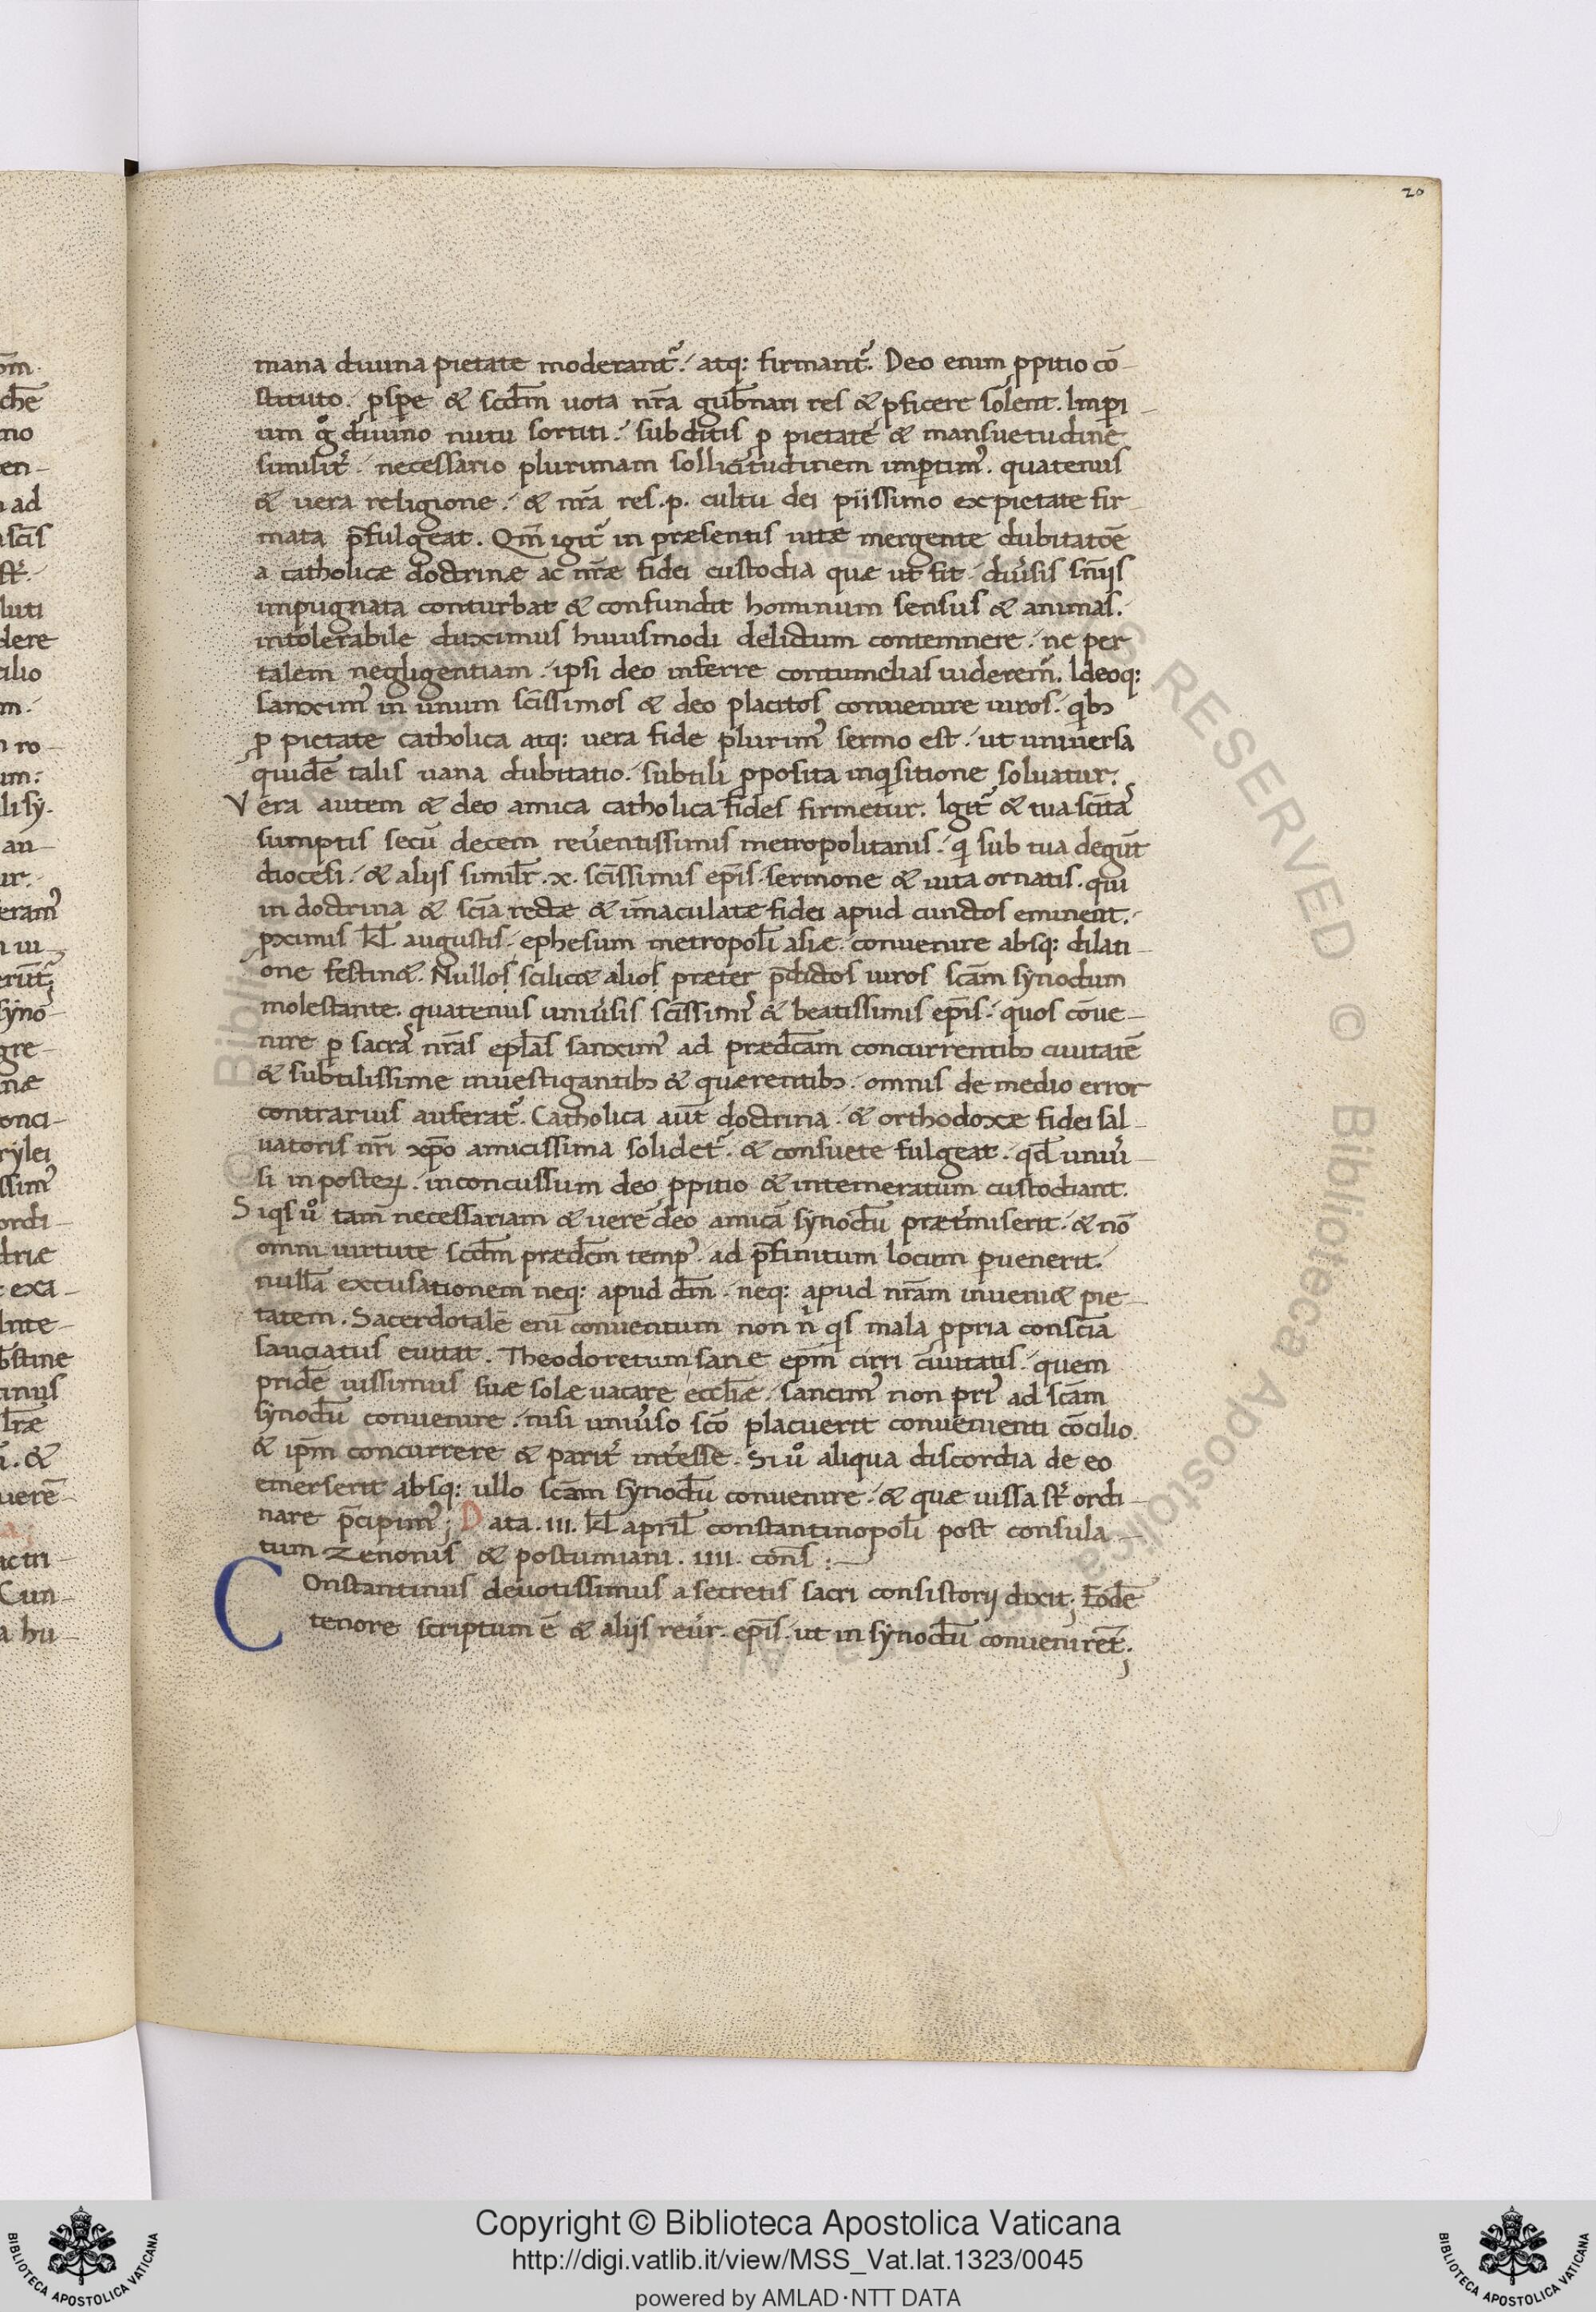 20
mana diuina pietate moderant᷑. atq: firmant᷑. Deo enim ꝓpitio cō-
stituto. ꝓspe & scd̄m uota nr̄a gub̄nari res & ꝑficere solent. Imꝑi-
um g° diuino nutu sortiti. subditis ꝓ pietate & mansuetudine
similit᷑. necessario plurimam sollicitudinem imꝑtimꝰ. quatenus
& uera religione. & nr̄a res.p. cultu dei piissimo ex pietate fir-
mata p̄fulgeat. Qm̄ igit᷑ in præsentis uitæ mergente dubitatōe
a catholicæ doctrinæ ac nr̄æ fidei custodia quæ ut fit. diu̓sis sn̄iis
impugnata conturbat & confundit hominum sensus & animas.
intolerabile duximus huiusmodi delictum contemnere. ne per
talem negligentiam. ipsi deo inferre contumelias uideremꝰ. Ideoq:
sanximꝰ in unum sc̄issimos & deo placitos conuenire uiros. qibꝫ
ꝓ pietate catholica atq: uera fide plurimꝰ sermo est. ut uniuersa
quidē talis uana dubitatio. subtili ꝓposita inqisitione soluatur.
Vera autem & deo amica catholica fides firmetur. Igit᷑ & tua sc̄itas
sumptis secū decem reu̓entissimis metropolitanis. qi sub tua degūt
diocesi. & aliis similr̄.x. sc̄issimis ep̄is. sermone & uita ornatis. qui
in doctrina & sc̄ia rectæ & īmaculatæ fidei apud cunctos eminent.
ꝓximis kl̄ augustis. ephesum metropolī asiæ. conuenire absq: dilati-
one festin&. Nullos scilic& alios præter p̄dictos uiros sc̄am synodum
molestante. quatenus uniu̓sis sc̄issimis & beatissimis ep̄is. quos cōue-
nire ꝑ sacras nr̄as ep̄las sanximꝰ ad prædc̄am concurrentibꝫ ciuitatē
& subtilissime inuestigantibꝫ & querentibꝫ. omnis de medio error
contrarius auferat᷑. Catholica aūt doctrina. & orthodoxæ fidei sal-
uatoris nr̄i xp̄o amicissima solidet᷑. & consuete fulgeat. qd̄ uniu̓-
si in posteꝝ. inconcussum deo ꝓpitio & intemeratum custodiant.
Siqis u° tam̄ necessariam & uere deo amicā synodū præt̓miserit. & nō
omni uirtute scd̄m prædc̄m tempꝰ. ad p̄finitum locum ꝑuenerit.
nullā excusationem neq: apud dm̄. neq: apud nr̄am inueni& pie-
tatem. Sacerdotalē enī conuentum non n̓ qis mala ꝓpria consc̄ia
sauciatus euitat. Theodoretum sane ep̄m cirri ciuitatis. quem
pridē iussimus suæ solæ uacare eccl̄iæ. sancimꝰ non priꝰ ad sc̄am
synodū conuenire. nisi uniu̓so sc̄o placuerit conuenienti cōcilio.
& ip̄m concurrere & parit᷑ int̓esse. Si u° aliqua discordia de eo
emerserit absq: ullo sc̄am synodū conuenire. & quæ iussa st̄ ordi-
nare p̄cipimꝰ; Data.III. kl̄ april̄ constantinopolī post consula-
tum zenonis & postumiani. IIII. cons̄:-
Constantinus deuotissimus a secretis sacri consistorii dixit; Eodē
tenore scriptum ē & aliis reu̓r. ep̄is. ut in synodū conuenirēt.;
Copyright © Biblioteca Apostolica Vaticana
http://digi.vatlib.it/view/MSS_Vat.lat.1323/0045
powered by AMLAD·NTT DATA